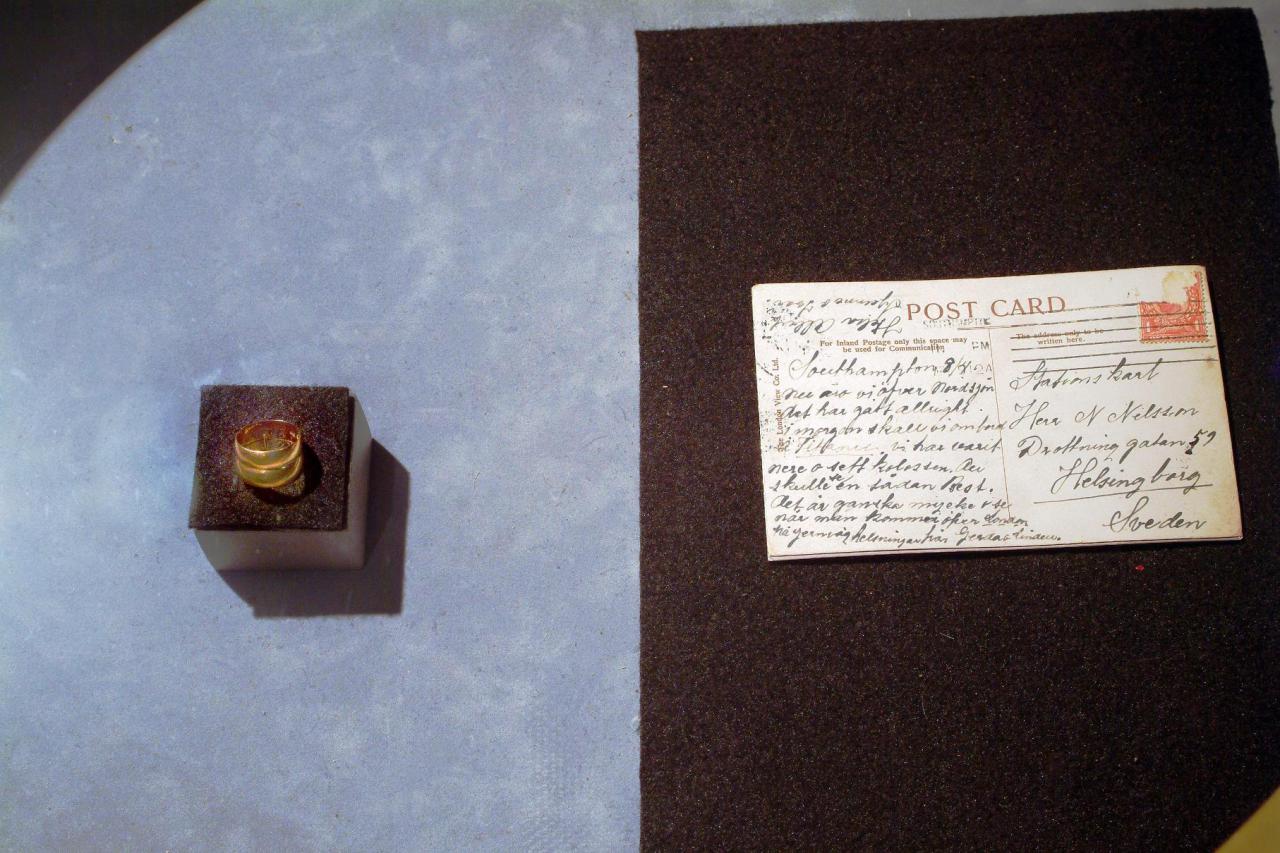 POST CARD
SOUTHAMPTON
PM
For Inland Postage only this space may
be used for Communication
The address only to be
written here.
The London View Co. Ltd.
Southampton 9/4
nu äro vi öfver Nordsjön
det har gått allright.
i morgon skall vi ombord
Titanic vi har varit
nere o sett kolossen. du
skulle se en sådan Best.
det är ganska mycke o se
när man kommer öfver London
helsningar från Gerda & Linden.
Stationskarl
Herr N Nilsson
Drottning gatan 59
Helsingborg
Sveden